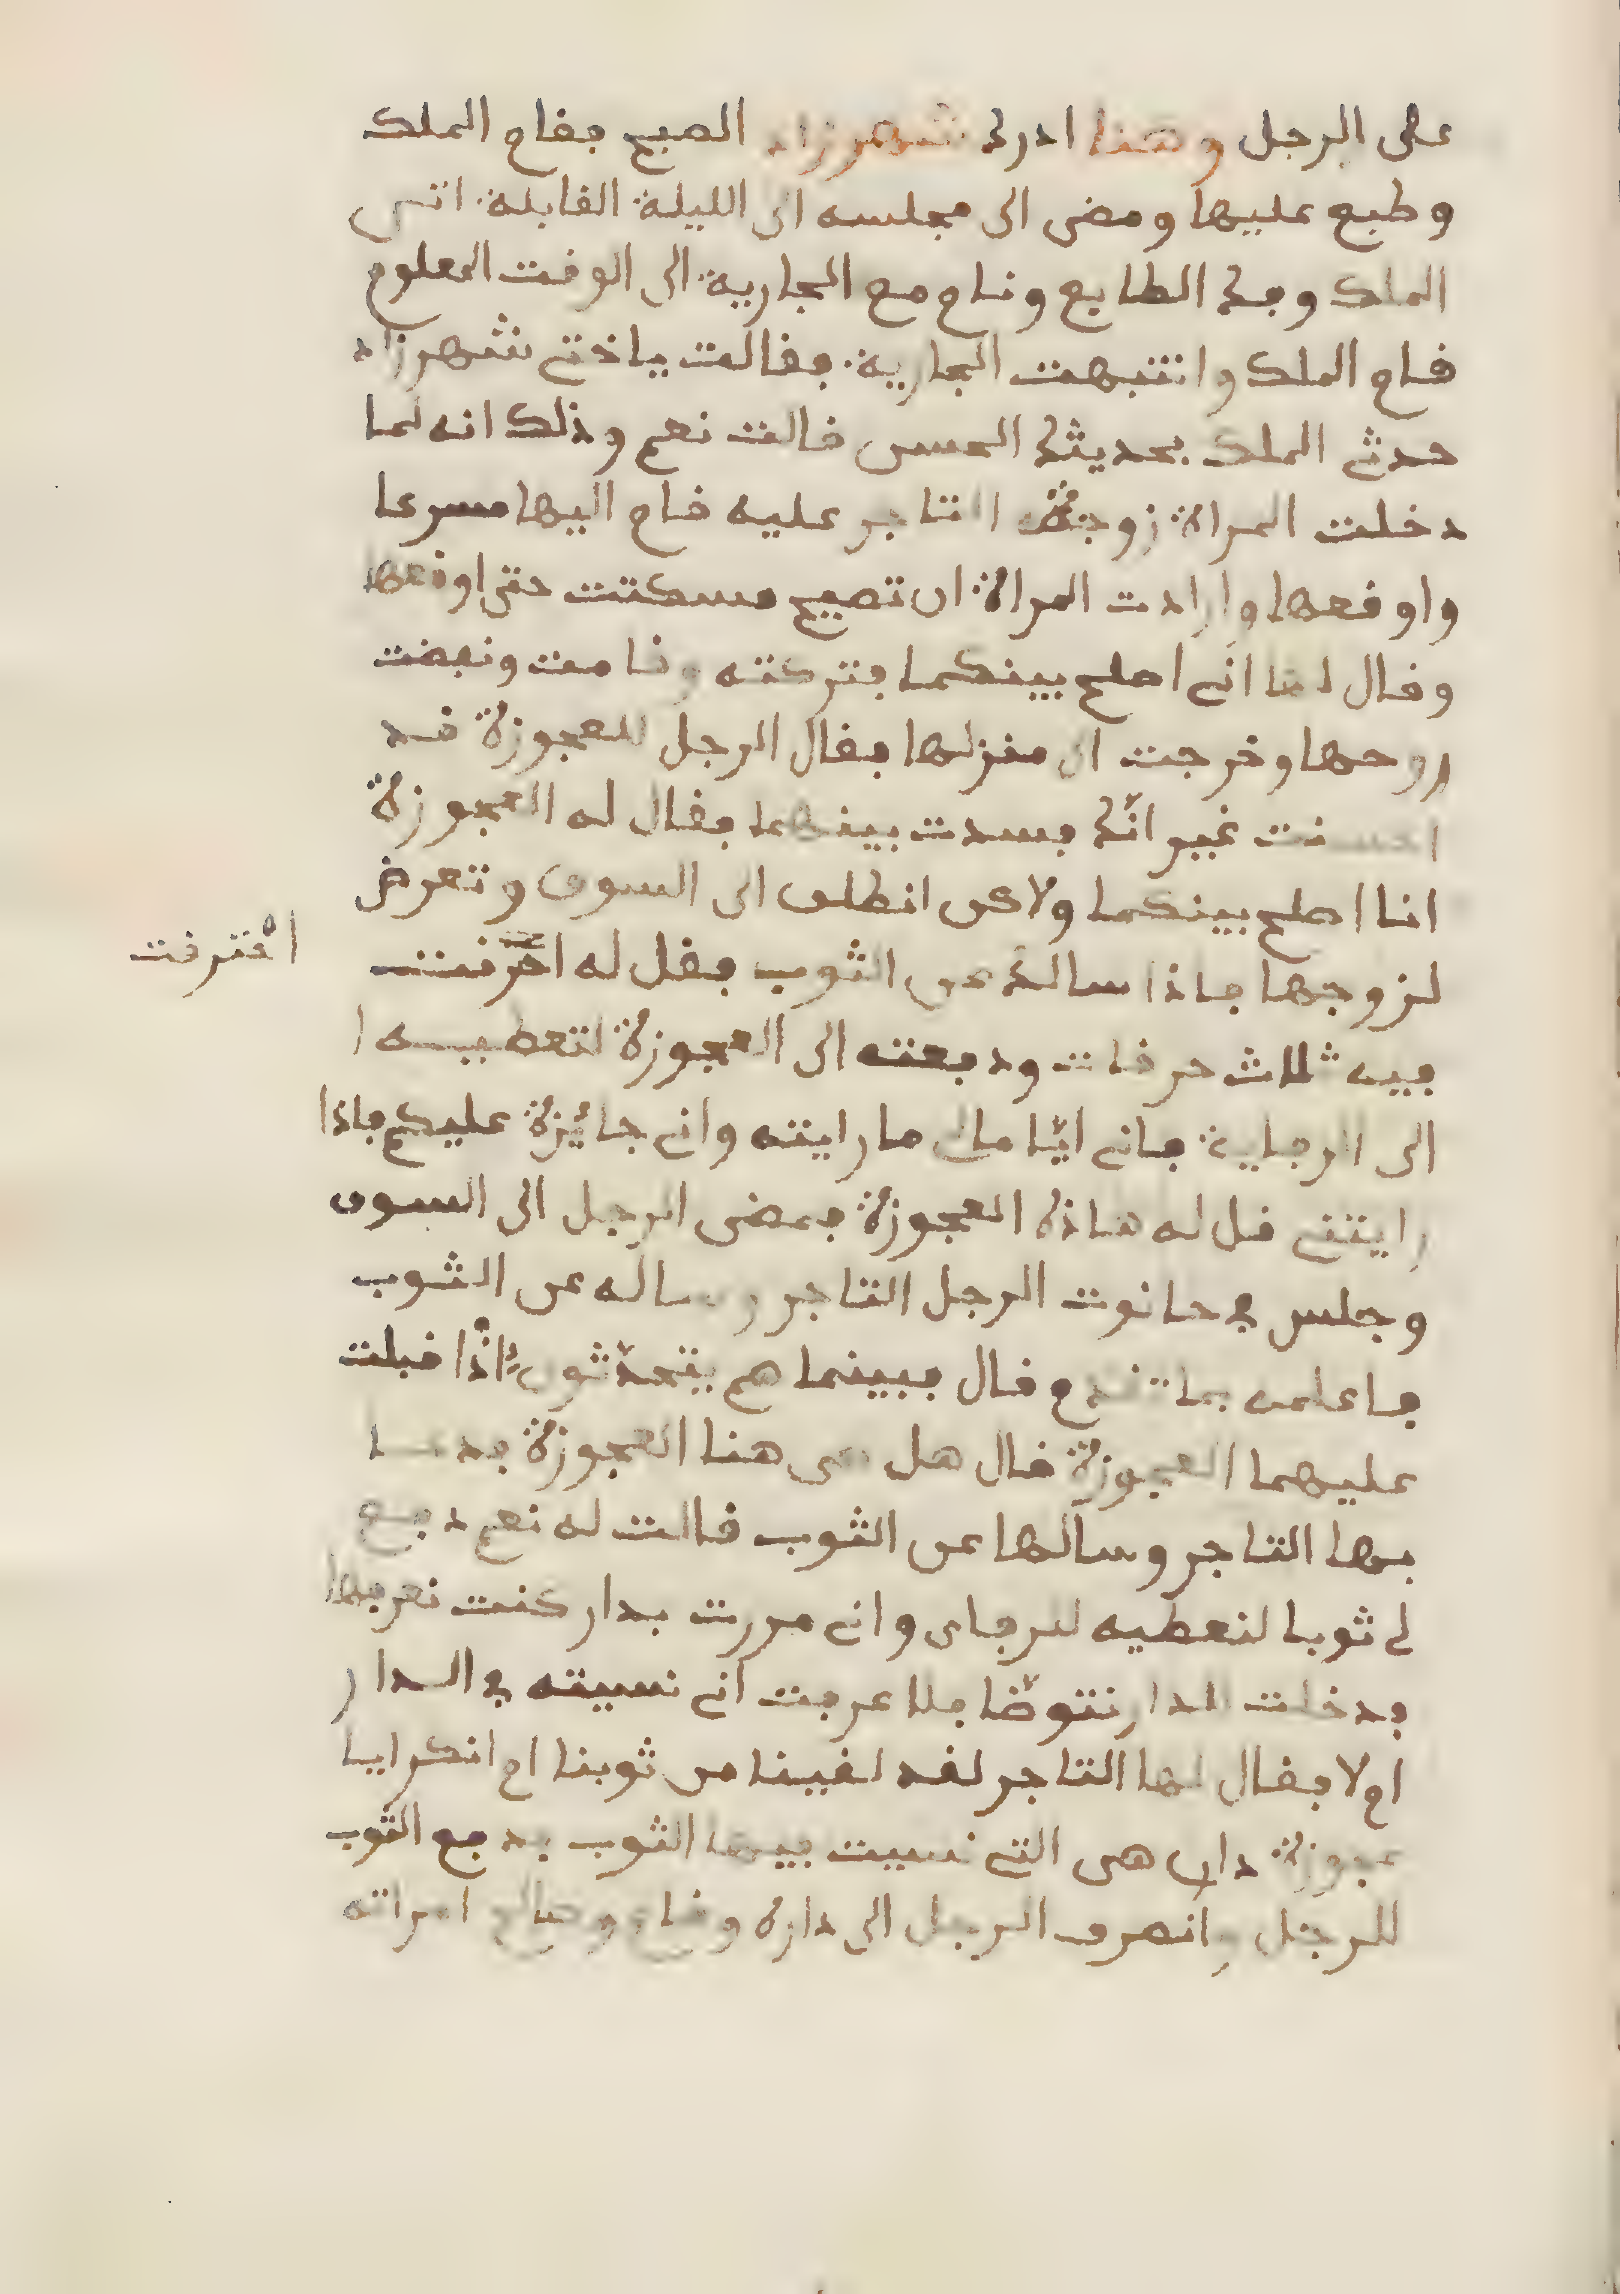 على الرجل وهنا ادرك شهرزاد الصبح فقام الملك
وطبع عليها ومضى الى مجلسه الى الليلة القابلة اتى
الملك وفك الطابع ونام مع الجارية الى الوقت المعلوم
قام الملك وانتبهت الجارية فقالت ياختي شهرزاد
حدثي الملك بحديثك الحسن قالت نعم وذلك انه لما
دخلت المراة زوجة التاجر عليه قام اليها مسرعا
واوقعها وارادت المراة ان تصيح مسكتت حتى اوقعها
وقال لها اني اصلح بينكما فتركته وقامت ونفضت
روحها وخرجت الى منزلها فقال الرجل للعجوزة قد
احسنت غير انك فسدت بينهما فقال له العجوزة
انا اصلح بينكما ولاكن انطلق الى السوق وتعرض
لزوجها فاذا سالك عن الثوب فقل له احرقت
احترقت
فيه ثلاث حرقات ودفعته الى العجوزة لتعطيه ا
الى الرفاية فاني ايا مال ما رايته واني جائزة عليكم فاذا
رايتني قل له هاذه العجوزة فمضى الرجل الى السوق
وجلس في حانوت الرجل التاجر وساله عن الثوب
فاعلمه بما تقدم قال فبينما هم يتحدثون اذا قبلت
عليهما العجوزة قال هل هي هنا العجوزة فدعا
بها التاجر وسالها عن الثوب قالت له نعم دفع
لي ثوبا لنعطيه للرفاي واني مررت بدار كنت نعرفها
فدخلت الدار نتوضا فلا عرفت اني نسيته في الدار
ام لا فقال لها التاجر لقد لقينا من ثوبنا ام انكرايا
عجوزة دار هي التي نسيت فيها الثوب فدفع الثوب
للرجل وانصرف الرجل الى داره وقام وصالح امراته